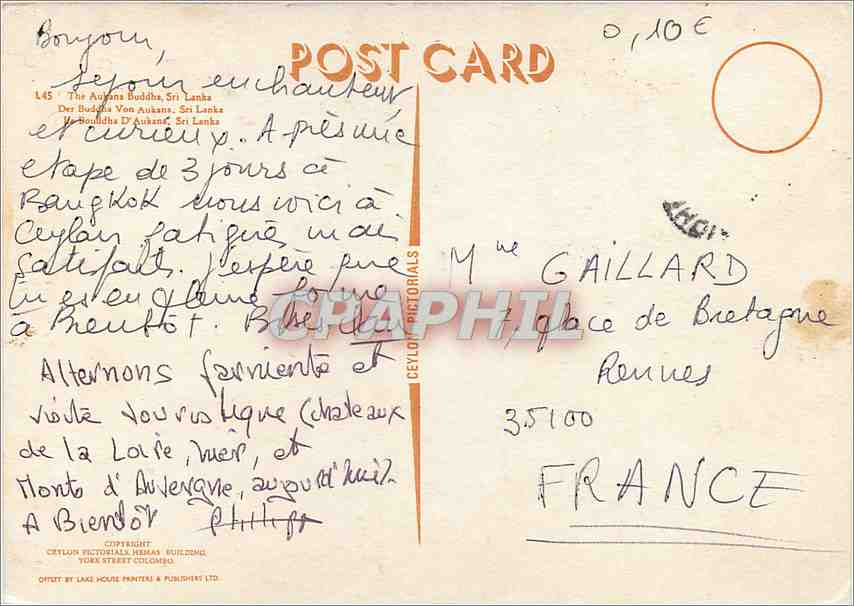 Bonjour,
0,10€
POST CARD
Séjour enchanteur
L45 The Aukana Buddha, Sri Lanka
Der Buddha Von Aukana, Sri Lanka
Le Bouddha D'Aukana, Sri Lanka
et curieux. Après une
etape de 3 jours à
BANGKOK nous voici à
Ceylan fatigués mais
satisfaits. J'espère que
tu es en pleine forme
à Bientôt. Bises
CEYLON PICTORIALS
CPAPHIL
Mme GAILLARD
7, place de Bretagne
Rennes
35100
FRANCE
Alternons farniente et
visite touristique (chateaux
de la Loire, hier, et
Monts d'Auvergne, aujourd'hui).
A Bientôt Philippe
COPYRIGHT
CEYLON PICTORIALS, HEMAS BUILDING,
YORK STREET COLOMBO.
OFFSET BY LAKE HOUSE PRINTERS & PUBLISHERS LTD.